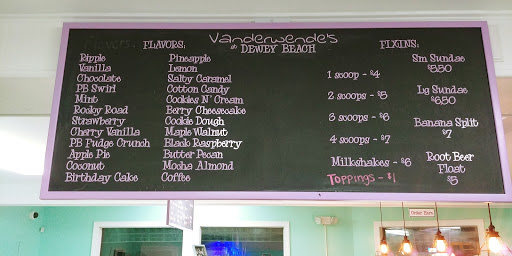 Vanderwende's
at DEWEY BEACH
FLAVORS:
Ripple
Vanilla
Chocolate
PB Swirl
Mint
Rocky Road
Strawberry
Cherry Vanilla
PB Fudge Crunch
Apple Pie
Coconut
Birthday Cake
Pineapple
Lemon
Salty Caramel
Cotton Candy
Cookies N' Cream
Berry Cheesecake
Cookie Dough
Maple Walnut
Black Raspberry
Butter Pecan
Mocha Almond
Coffee
1 scoop - $4
2 scoops - $5
3 scoops - $6
4 scoops - $7
Milkshakes - $6
Toppings - $1
FIXINS:
Sm Sundae
$5.50
Lg Sundae
$6.50
Banana Split
$7
Root Beer
Float
$5
Order Here